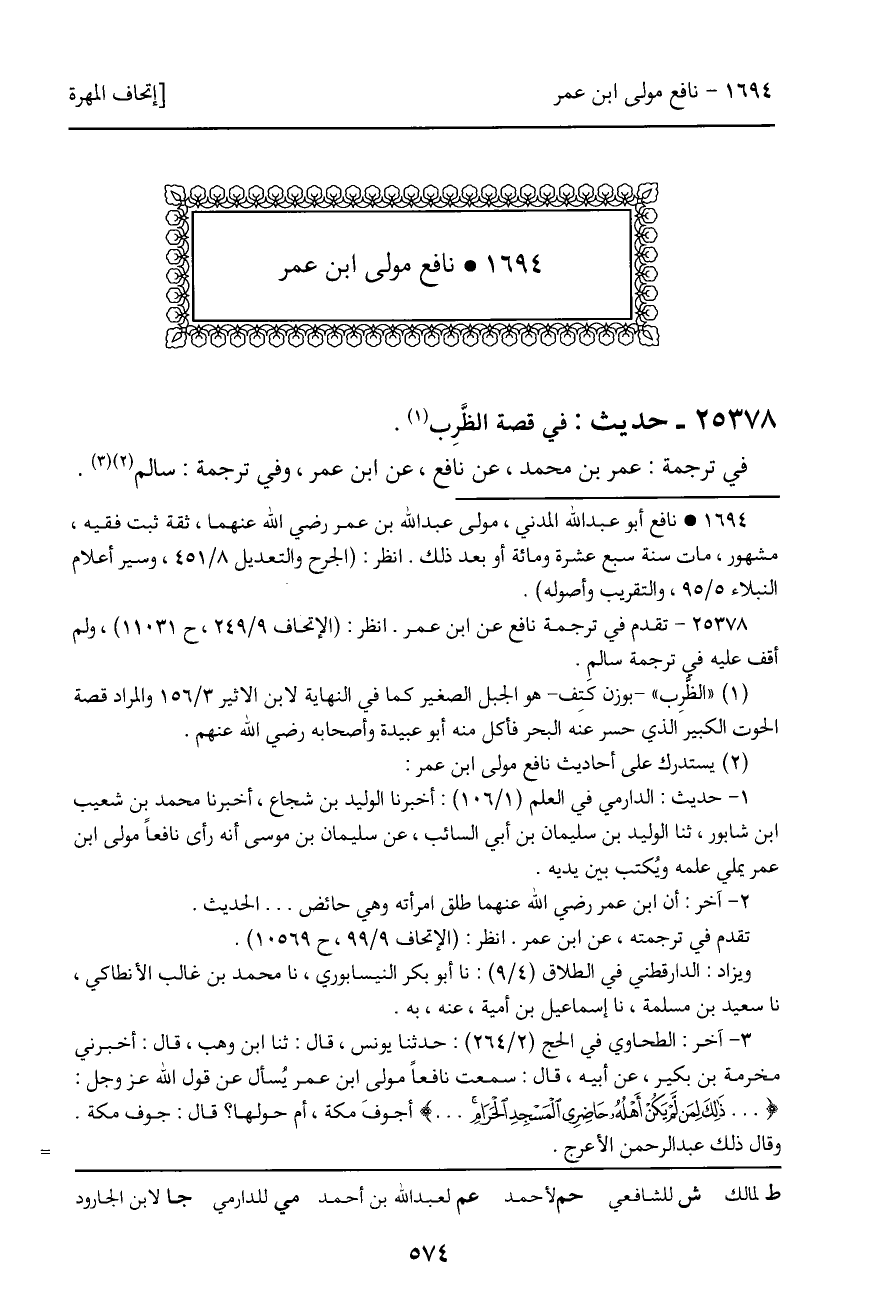 ١٦٩٤ - نافع مولى ابن عمر [إتحاف المهرة
١٦٩٤ ● نافع مولى ابن عمر
٢٥٣٧٨ ـ حديث : في قصة الظَّرِب(١) .
في ترجمة : عمر بن محمد ، عن نافع ، عن ابن عمر ، وفي ترجمة : سالم(٢)(٣) .
١٦٩٤ ● نافع أبو عبدالله المدني ، مولى عبدالله بن عمر رضي الله عنهما ، ثقة ثبت فقيه ،
مشهور ، مات سنة سبع عشرة ومائة أو بعد ذلك . انظر : (الجرح والتعديل ٤٥١/٨ ، وسير أعلام
النبلاء ٩٥/٥ ، والتقريب وأصوله) .
٢٥٣٧٨ - تقدم في ترجمة نافع عن ابن عمر . انظر : (الإتحاف ٢٤٩/٩ ، ح ١١٠٣١) ، ولم
أقف عليه في ترجمة سالم .
(١) «الظَّرِب» -بوزن كَتِف- هو الجبل الصغير كما في النهاية لابن الاثير ١٥٦/٣ والمراد قصة
الحوت الكبير الذي حسر عنه البحر فأكل منه أبو عبيدة وأصحابه رضي الله عنهم .
(٢) يستدرك على أحاديث نافع مولى ابن عمر :
١- حديث : الدارمي في العلم (١٠٦/١) : أخبرنا الوليد بن شجاع ، أخبرنا محمد بن شعيب
ابن شابور ، ثنا الوليد بن سليمان بن أبي السائب ، عن سليمان بن موسى أنه رأى نافعاً مولى ابن
عمر يملي علمه ويُكتب بين يديه .
٢- آخر : أن ابن عمر رضي الله عنهما طلق امرأته وهي حائض . . . الحديث .
تقدم في ترجمته ، عن ابن عمر . انظر : (الإتحاف ٩٩/٩ ، ح ١٠٥٦٩) .
ويزاد : الدارقطني في الطلاق (٩/٤) : نا أبو بكر النيسابوري ، نا محمد بن غالب الأنطاكي ،
نا سعيد بن مسلمة ، نا إسماعيل بن أمية ، عنه ، به .
٣- آخر : الطحاوي في الحج (٢٦٤/٢) : حدثنا يونس ، قال : ثنا ابن وهب ، قال : أخبرني
مخرمة بن بكير ، عن أبيه ، قال : سمعت نافعاً مولى ابن عمر يُسأل عن قول الله عز وجل :
﴿ . . . ذَٰلِكَ لِمَن لَّمْ يَكُنْ أَهْلُهُۥ حَاضِرِى ٱلْمَسْجِدِ ٱلْحَرَامِۚ . . .﴾ أجوفَ مكة ، أم حولها؟ قال : جوف مكة .
وقال ذلك عبدالرحمن الأعرج .
=
ط لمالك ش للشافعي حم لأحمد عم لعبدالله بن أحمد مي للدارمي جا لابن الجارود
٥٧٤